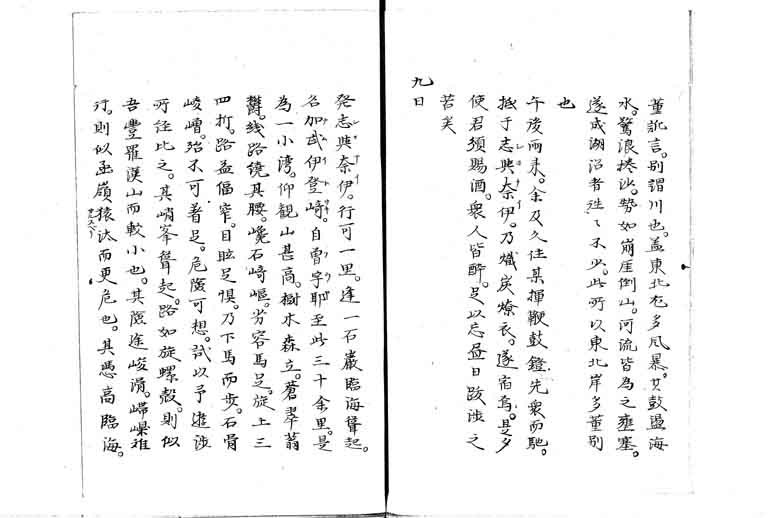 董訛言。別謂川也。蓋東北尤多風暴。其鼓盪海
水。驚浪捲沙。勢如崩崖倒山。河流皆為之壅塞。
遂成湖沼者往々不少。此所以東北岸多董別
也
午後雨来。余及久住某揮鞭鼓鐙。先衆而馳。
抵于志與奈伊。乃熾炭燎衣。遂宿焉。是夕
使君頒賜酒。衆人皆醉。足以忘昼日跋渉之
苦矣
九日
発志與奈伊。行可一里。逢一石巖臨海聳起。
名加武伊登崎。自曽宇耶至此三十余里。是
為一小湾。仰観山甚高。樹木森立。蒼翠蓊
欝。线路繞其腰。巉石崎嶇。劣容馬足。旋上三
四折。路益偪窄。目眩足慄。乃下馬而歩。石骨
崚嶒。殆不可著足。危険可想。試以予遊渉
所詮比之。其峭峯聳起。路如旋螺殻。則似
吾豊羅漢山而較小也。其険途峻滑。㠊嵲難
行。則似函嶺猿汰而更危也。其憑高臨海。